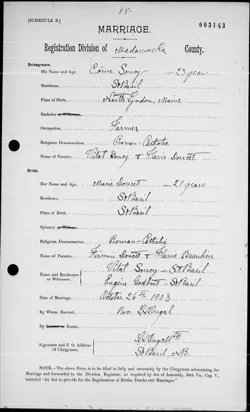 [SCHEDULE B.]
003143
MARRIAGE.
Registration Division of Madawaska County.
Bridegroom.
His Name and Age Côme Soucy — 23 years
Residence, St Basil
Place of Birth, North Lyndon, Maine
Bachelor or Widower,
Occupation, Farmer
Religious Denomination, Roman-Catholic
Name of Parents, Vital Soucy & Flavie Doucet
Bride.
Her Name and Age, Marie Doucet — 21 years
Residence, St Basil
Place of Birth St Basil
Spinster or Widow,
Religious Denomination, Roman-Catholic
Name of Parents, Firmin Doucet & Flavie Beaulieu
Name and Residences of Witnesses, Vital Soucy — St Basil
Eugène — St Basil
Date of Marriage, October 26th 1903
By Whom Married, Rev. L.
By License or Banns, Banns
Signature and P. O. Address of Clergyman, St Basil, N.B.
NOTE.—The above Form is to be filled in fully and accurately by the Clergyman solemnizing the Marriage and forwarded to the Division Registrar, as required by Act of Assembly, 50th Vic., Cap. V., intituled "An Act to provide for the Registration of Births, Deaths and Marriages."